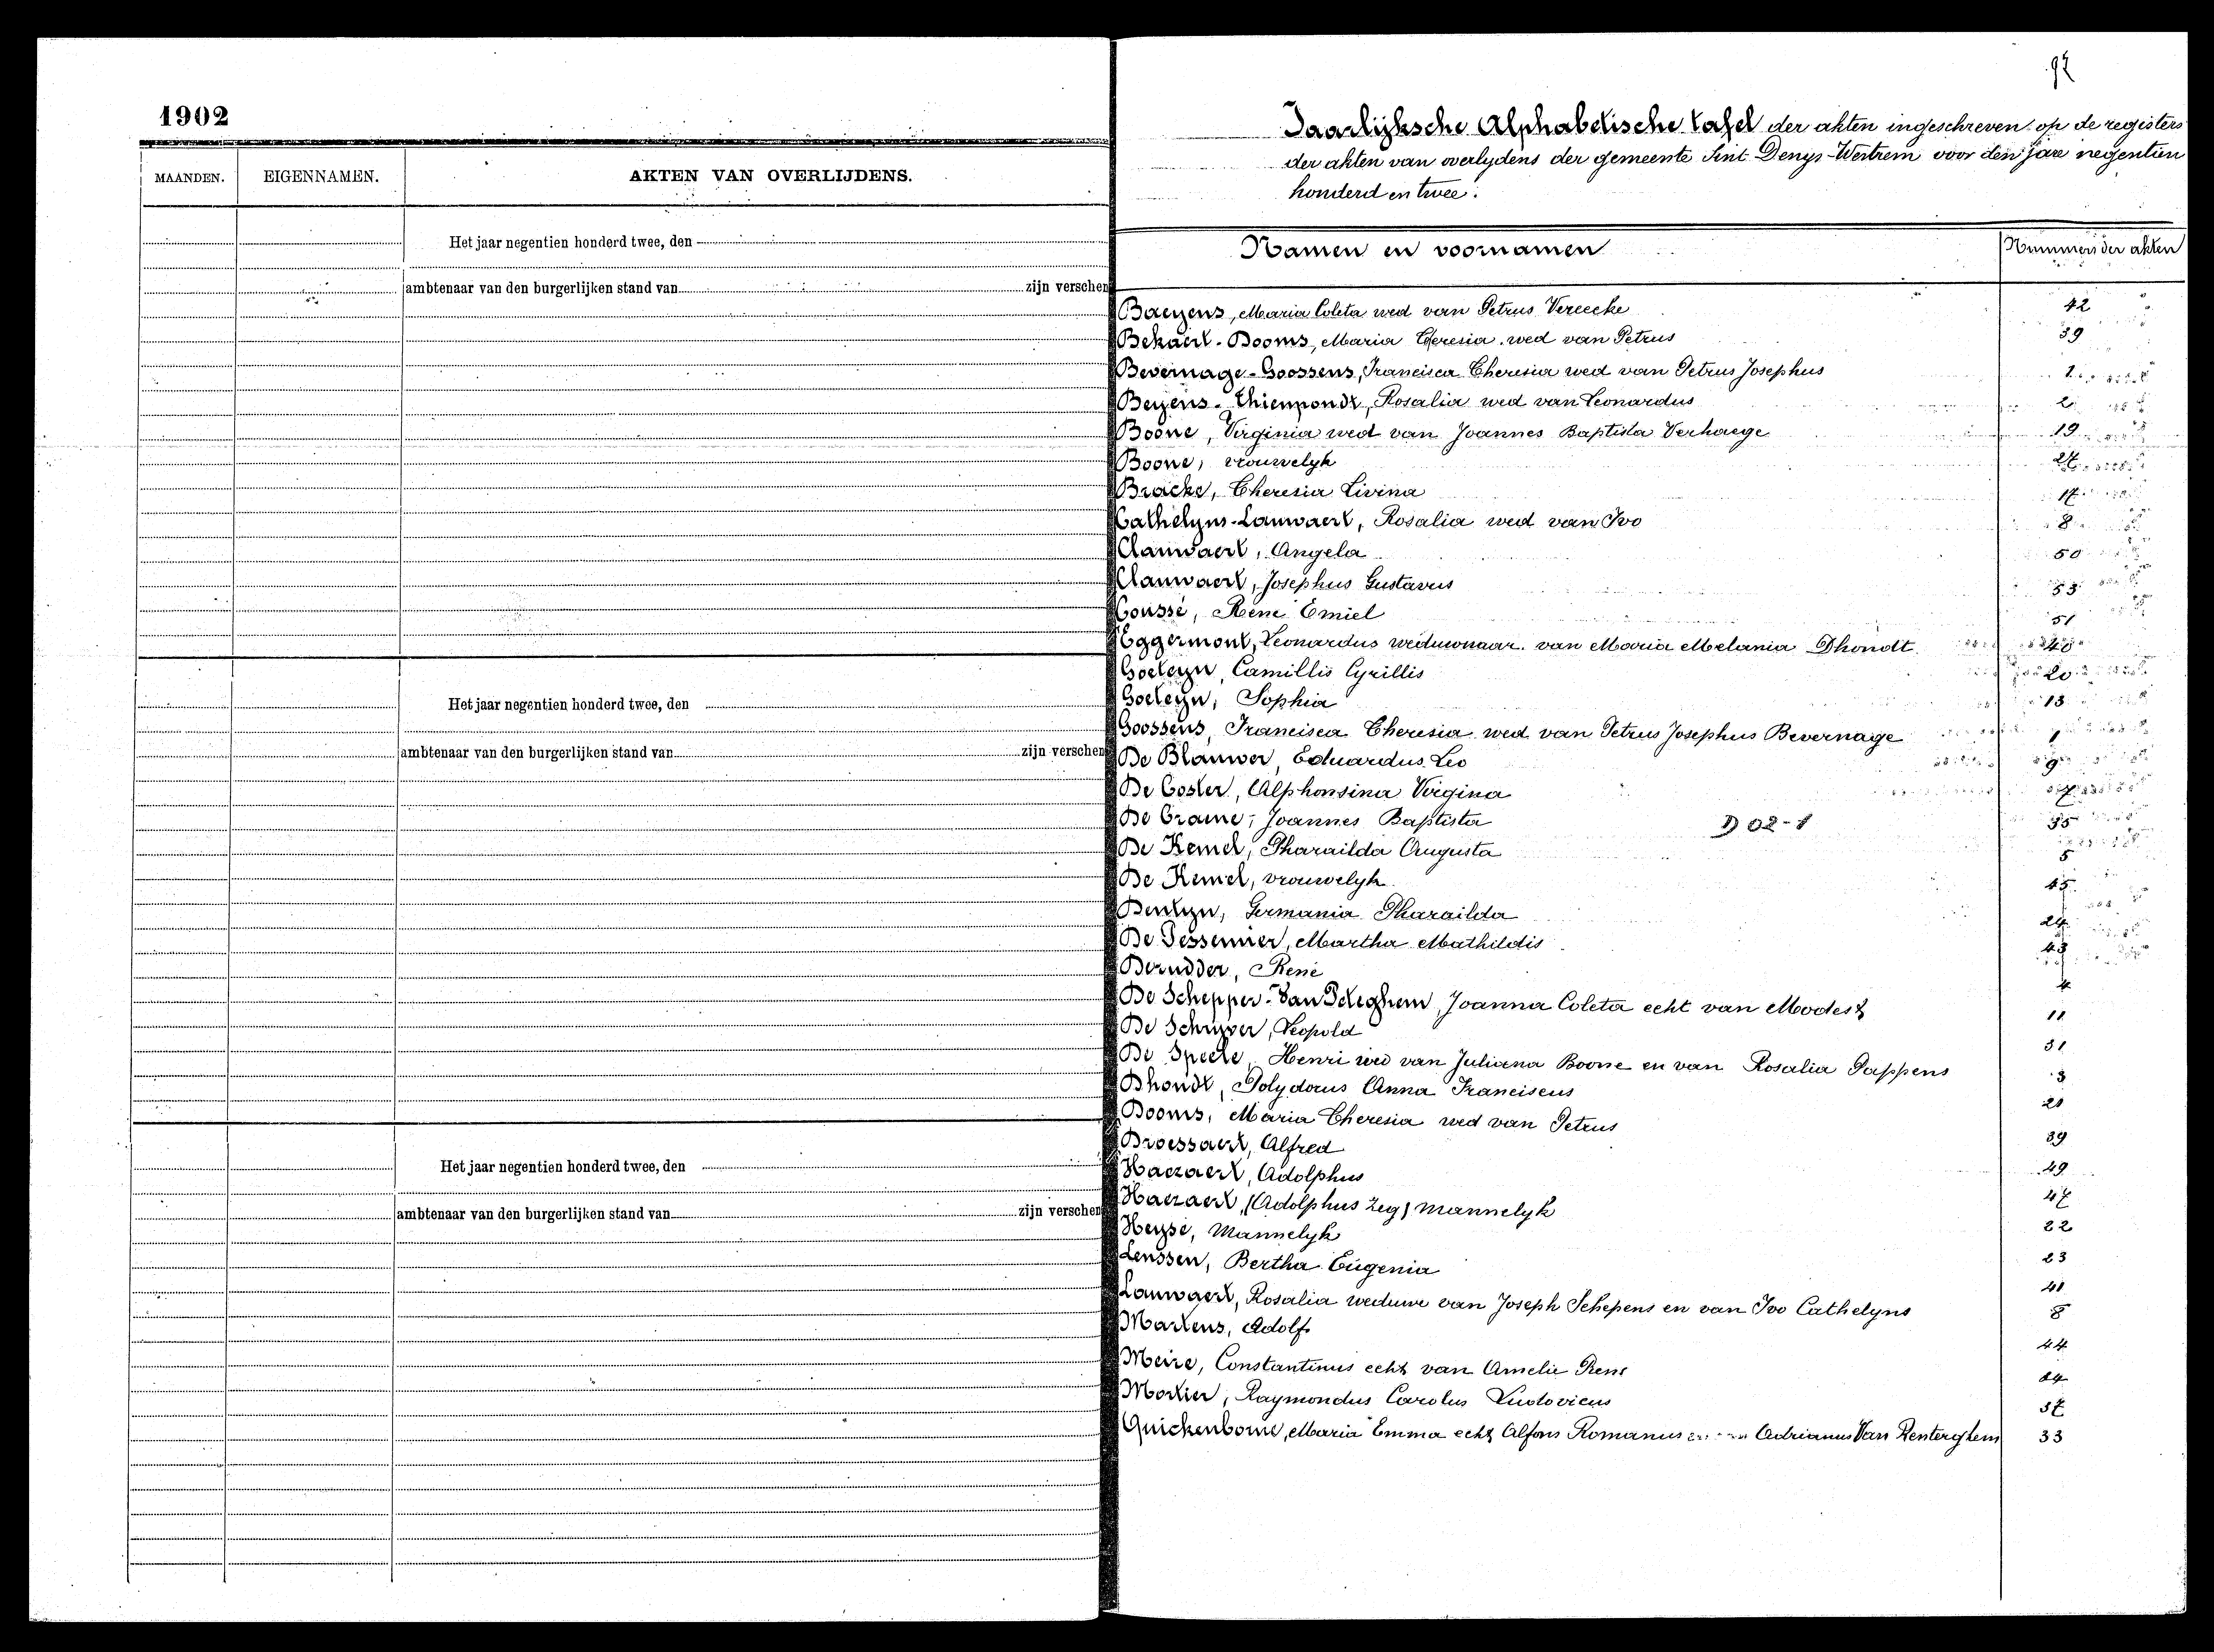 1902
MAANDEN. EIGENNAMEN. AKTEN VAN OVERLIJDENS.
Het jaar negentien honderd twee, den
ambtenaar van den burgerlijken stand van zijn verschen
Het jaar negentien honderd twee, den
ambtenaar van den burgerlijken stand van zijn verschen
Het jaar negentien honderd twee, den
ambtenaar van den burgerlijken stand van zijn verschen
Jaarlijksche Alphabetische tafel der akten ingeschreven op de registers
der akten van overlydens der gemeente Sint Denys-Westrem voor den jare negentien
honderd en twee.
Namen en voornamen Nummers der akten
Baeyens, Maria Coleta wed van Petrus Vereecke 42
Bekaert-Booms, Maria Theresia wed van Petrus 39
Bevernage-Goossens, Francisca Theresia wed van Petrus Josephus 1
Beyens-Thienpondt, Rosalia wed van Leonardus 2
Boone, Virginia wed van Joannes Baptista Verhaege 19
Boone, vrouwelyk
Bracke, Theresia Livina 17
Cathelyns-Lauwaert, Rosalia wed van Ivo 8
Clauwaert, Angela 50
Clauwaert, Josephus Gustavus 53
Coussé, René Emiel 51
Eggermont, Leonardus weduwnaar van Maria Melania Dhondt
Goeleyn, Camillis Cyrillis 20
Goeleyn, Sophia 13
Goossens, Francisca Theresia wed van Petrus Josephus Bevernage 1
De Blauwer, Eduardus Leo 9
De Coster, Alphonsina Virgina
De Craene, Joannes Baptista D 02-1 35
De Kemel, Pharailda Augusta 5
De Kemel, vrouwelyk 45
Dentyn, Germania Pharailda 24
De Pessemier, Martha Mathildis 43
Derudder, René 4
De Schepper-Van Peteghem, Joanna Coleta echt van Modest 11
De Schrijver, Leopold 31
De Speele, Henri wed van Juliana Boone en van Rosalia Pappens 3
Dhondt, Polydorus Anna Franciscus 21
Dooms, Maria Theresia wed van Petrus 39
Droessaert, Alfred 49
Haezaert, Adolphus 47
Haezaert, (Adolphus zeg) mannelyk 22
Heyse, Mannelyk 23
Lenssen, Bertha Eugenia 41
Lauwaert, Rosalia weduwe van Joseph Schepens en van Ivo Cathelyns 8
Martens, Adolf 44
Meire, Constantinus echt van Amelie Rens 14
Mortier, Raymondus Carolus Ludovicus 37
Quickenborne, Maria Emma echt Alfons Romanus Adrianus Van Renterghem 33